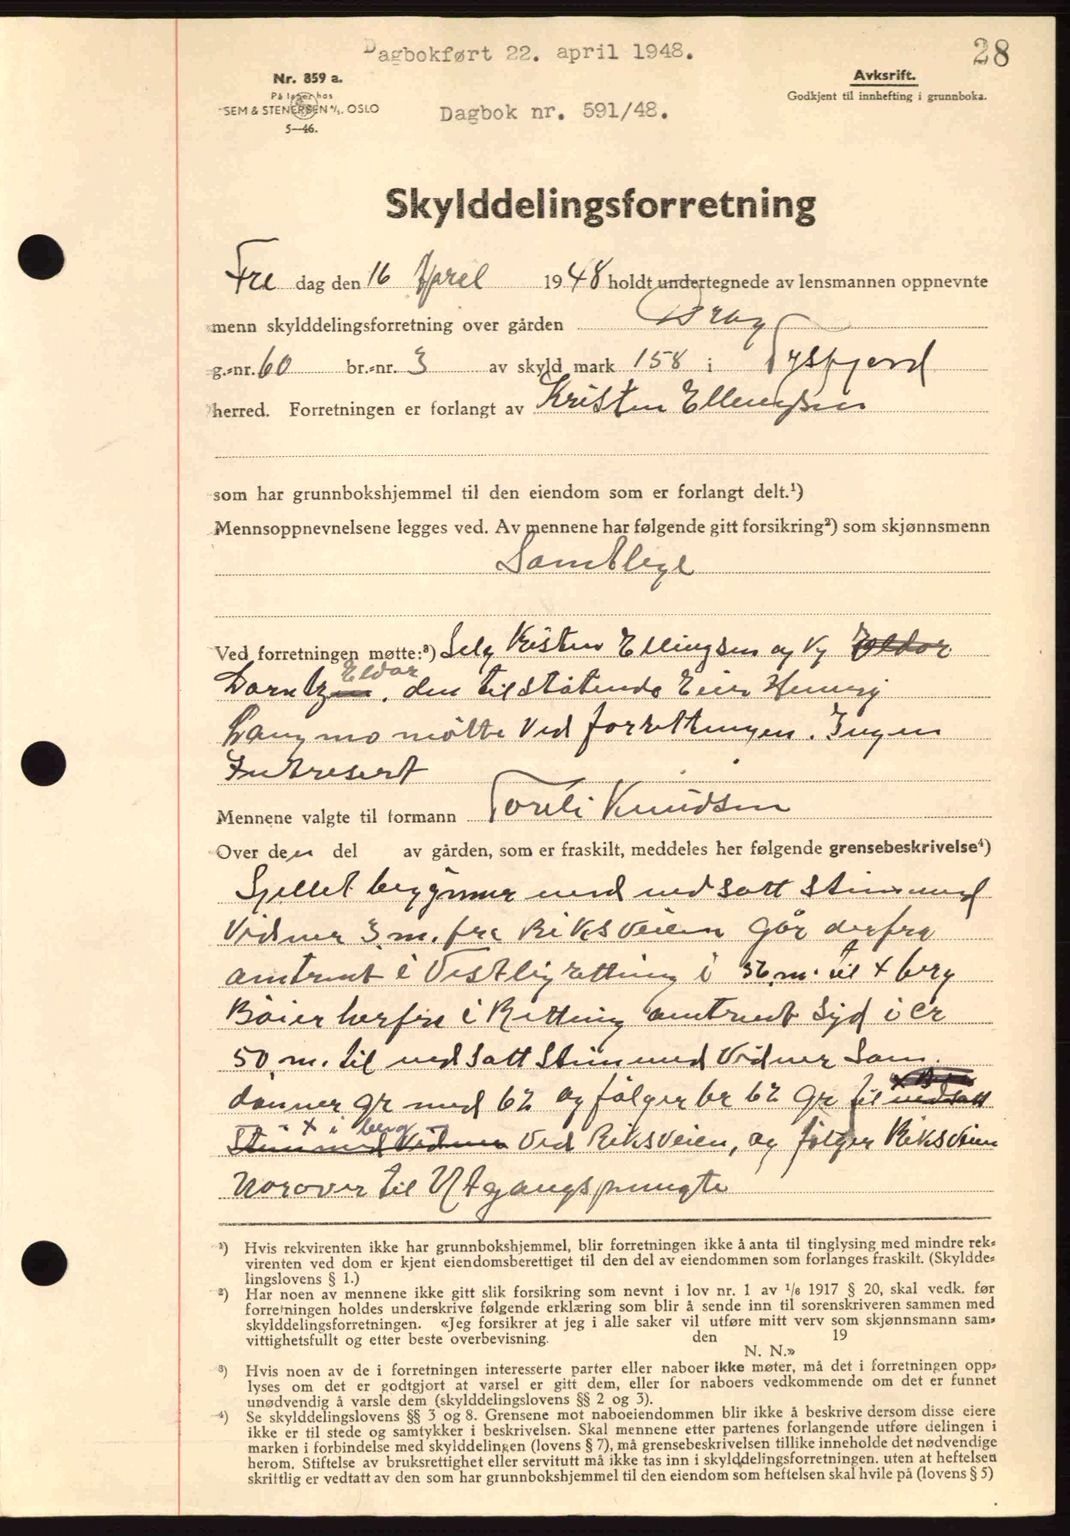 Dagbokført 22. april 1948.
28
Nr. 859 a.
På lager hos
SEM & STENERSEN A/S. OSLO
5—46.
Dagbok nr. 591/48.
Avksrift.
Godkjent til innhefting i grunnboka.
Skylddelingsforretning
Fre dag den 16 April 1948 holdt undertegnede av lensmannen oppnevnte
menn skylddelingsforretning over gården Drag
g.-nr. 60 br.-nr. 3 av skyld mark 158 i Tysfjord
herred. Forretningen er forlangt av Kristen Ellingsen
som har grunnbokshjemmel til den eiendom som er forlangt delt.¹)
Mennsoppnevnelsene legges ved. Av mennene har følgende gitt forsikring²) som skjønnsmenn
Samtlige
Ved forretningen møtte:³) Selg Kristen Ellingsen og Kj
Eldar
den tilstøtende Eier Henry
Langmo møtte ved forretningen. Ingen
Intresert
Mennene valgte til formann Toralf Knudsen
Over den del av gården, som er fraskilt, meddeles her følgende grensebeskrivelse⁴)
Sjellet begynner med nedsatt Stein med
Vidner 3 m. fra Riksveien Går derfra
amtrent i Vestlig rettning i 56 m. til x berg
Bøier herfra i Rettning amtrent Syd i cr
50 m. til nedsatt Stein med Vidner Som
danner gr med 62 og følger br 62 Gr til nedsatt
x i berg
Stein med Vidner Ved Riksveien, og følger Riksveien
Norover til Utgangspungte
¹) Hvis rekvirenten ikke har grunnbokshjemmel, blir forretningen ikke å anta til tinglysing med mindre rek-
virenten ved dom er kjent eiendomsberettiget til den del av eiendommen som forlanges fraskilt. (Skyldde-
lingslovens § 1.)
²) Har noen av mennene ikke gitt slik forsikring som nevnt i lov nr. 1 av 1/6 1917 § 20, skal vedk. før
forretningen holdes underskrive følgende erklæring som blir å sende inn til sorenskriveren sammen med
skylddelingsforretningen. «Jeg forsikrer at jeg i alle saker vil utføre mitt verv som skjønnsmann sam-
vittighetsfullt og etter beste overbevisning. den 19
N. N.»
³) Hvis noen av de i forretningen interesserte parter eller naboer ikke møter, må det i forretningen opp-
lyses om det er godtgjort at varsel er gitt dem, eller for naboers vedkommende om det er funnet
unødvendig å varsle dem (skylddelingslovens §§ 2 og 3).
⁴) Se skylddelingslovens §§ 3 og 8. Grensene mot naboeiendommen blir ikke å beskrive dersom disse eiere
ikke er til stede og samtykker i beskrivelsen. Skal mennene etter partenes forlangende utføre delingen i
marken i forbindelse med skylddelingen (lovens § 7), må grensebeskrivelsen tillike inneholde det nødvendige
herom. Stiftelse av bruksrettighet eller servitutt må ikke tas inn i skylddelingsforretningen. uten at heftelsen
skriftlig er vedtatt av den som har grunnbokshjemmel til den eiendom som heftelsen skal hvile på (lovens § 5)